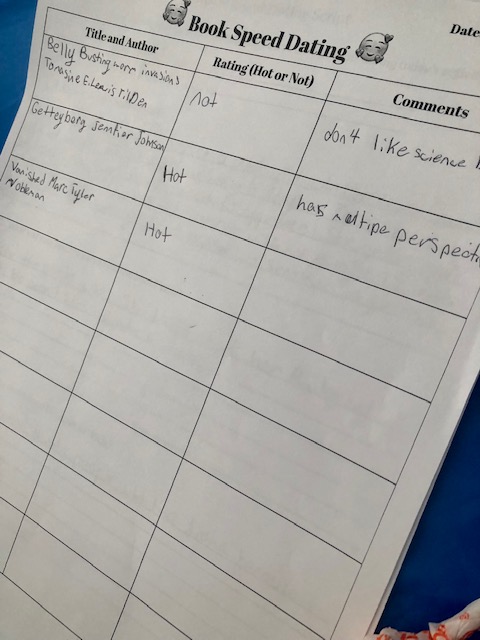 Book Speed Dating
Date
Title and Author
Rating (Hot or Not)
Comments
Belly Busting worm invasions
Tomasine E. Lewis Tilden
not
don't like science
Getteyborg Jennifer Johnson
Hot
has multipe perspecti
Vanished Marc Tyler
Nobleman
Hot